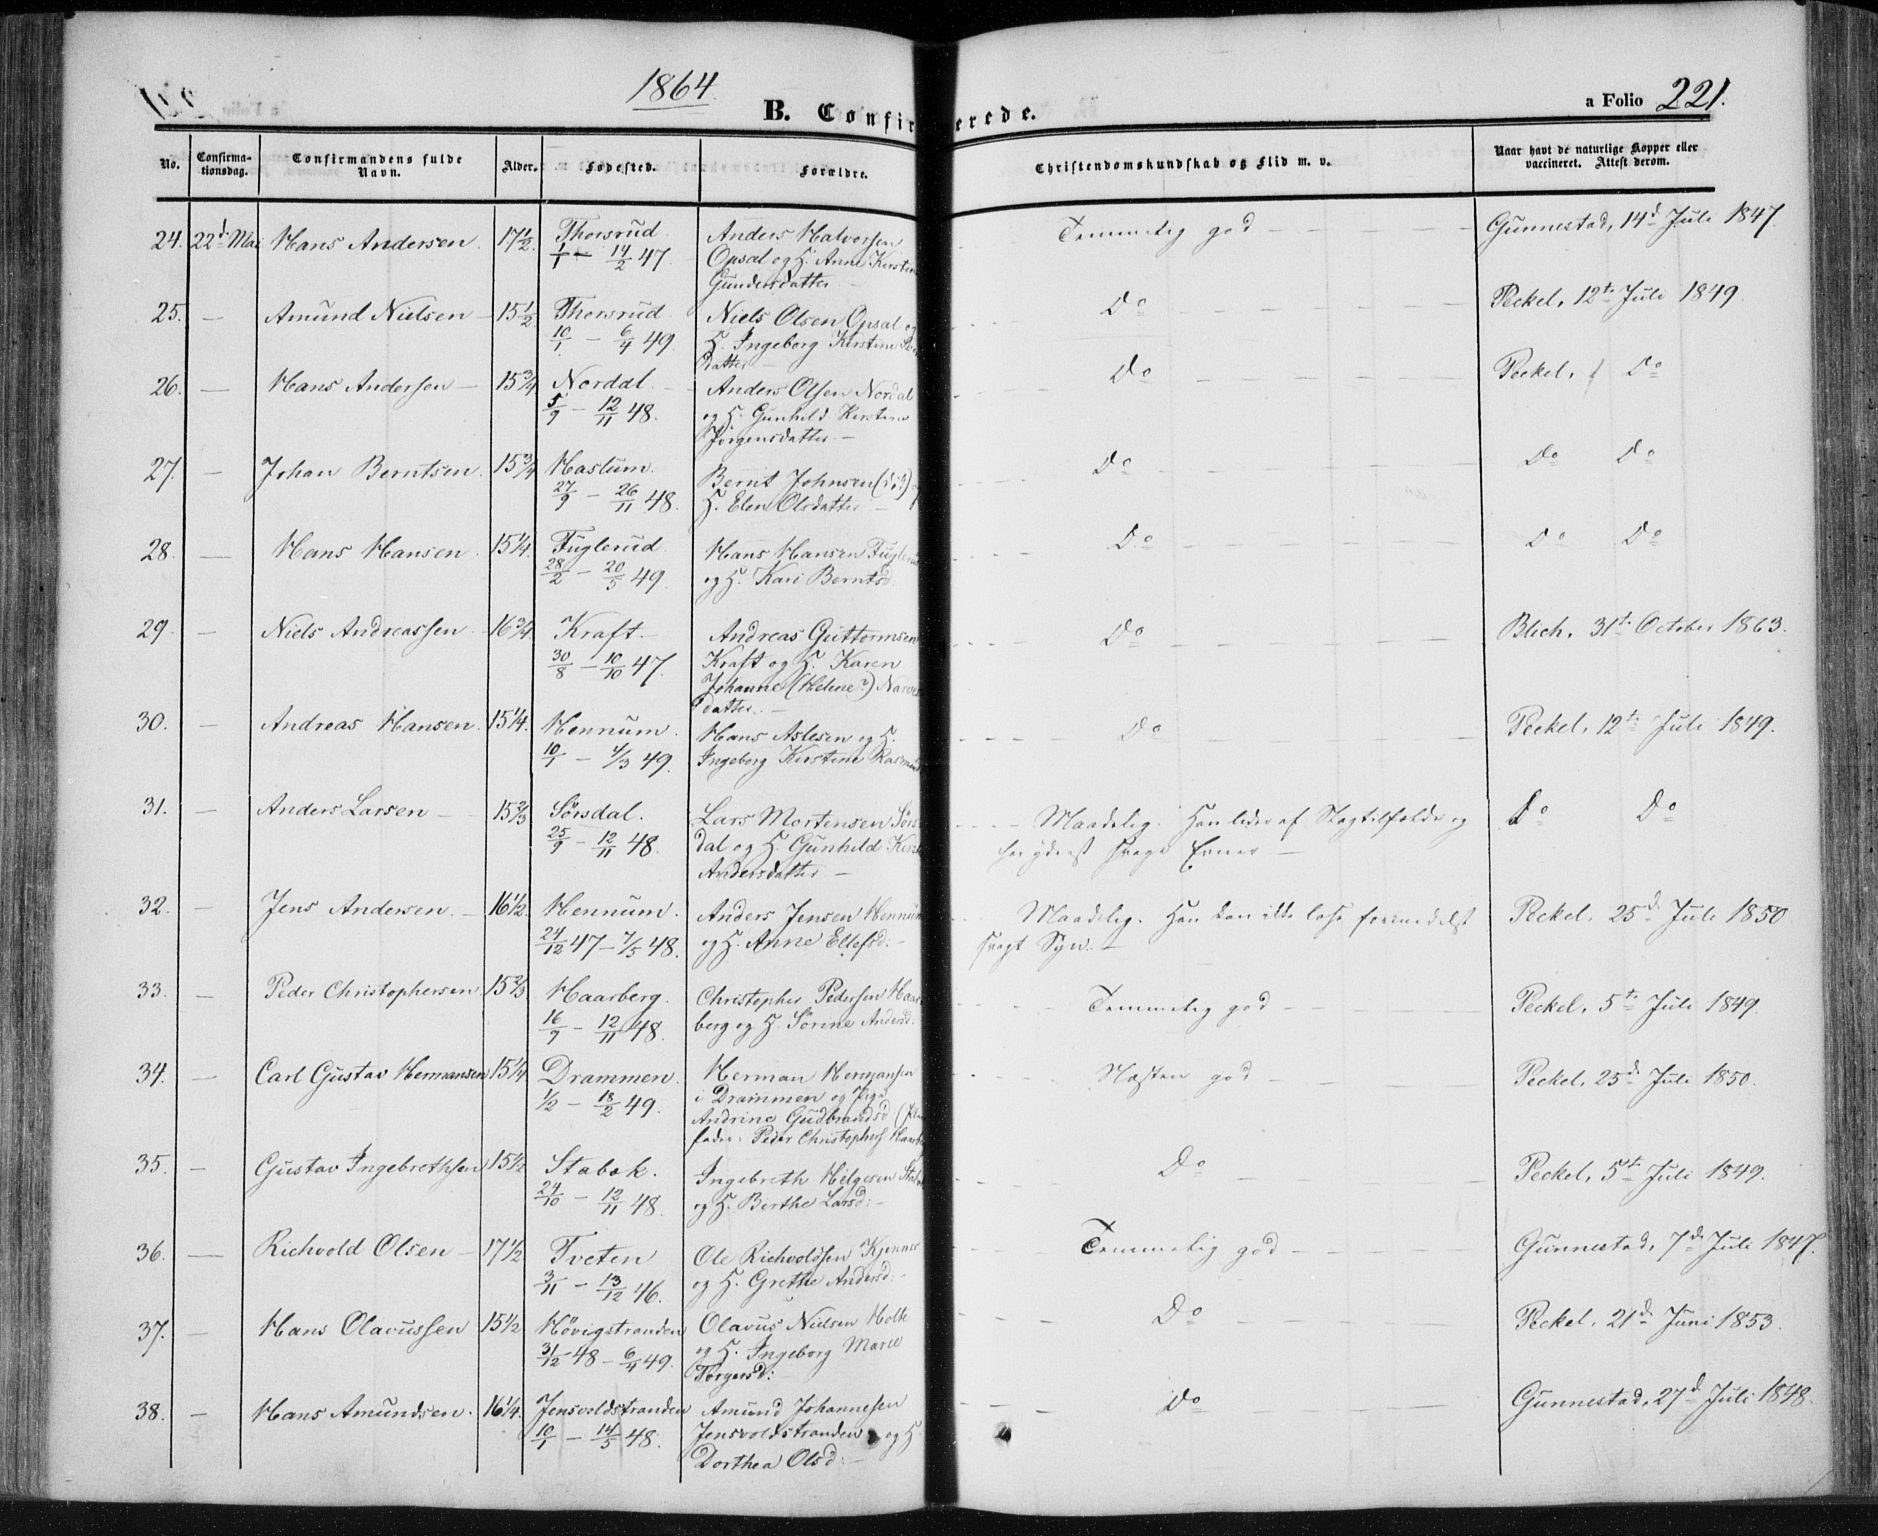 1864
B. Confirmerede.
a Folio 221.
No. Confirmationsdag. Confirmandens fulde Navn. Alder. Fødested. Forældre. Christendomskundskab og Flid m. v. Naar havt de naturlige Kopper eller vaccineret. Attest derom.
24. 22d Mai Hans Andersen. 17½. Thorsrud Anders Halvorsen Temmelig god Gunnestad, 14d Juli 1847.
1/1 – 14/2 47. Opsal og H. Anne Kirstine
Gundersdatter –
25. — Amund Nielsen 15½. Thorsrud Niels Olsen Opsal og Do Peckel, 12te Juli 1849.
10/1 – 6/4 49. H. Ingeborg Kirstine
datter –
26. — Hans Andersen 15¾ Norddal. Anders Olsen Nordal Do Peckel, Do
5/9 – 12/11 48. og H. Gunhild Kirstine
Jörgensdatter –
27. — Johan Berntsen. 15¾ Haslum. Bernt Johnsen (do?) og Do Do Do
27/9 – 26/11 48. H. Elen Olsdatter –
28. — Hans Hansen. 15¼. Fuglerud Hans Hansen Fuglerud Do Do Do
28/2 – 20/5 49. og H. Kari Berntsd:
29. — Niels Andreassen. 16¾. Kraft. Andreas Guttormsen Do Blich, 31te October 1863.
30/8 – 10/10 47. Kraft og H. Karen
Johanne (Helene?)
datter. –
30. — Andreas Hansen. 15¼. Hennum. Hans Aslesen og H. Do Peckel, 12te Juli 1849.
10/1 – 4/3 49. Ingeborg Kirstine
31. — Anders Larsen 15⅔ Sörsdal. Lars Mortensen Sörs- Maadelig. Han lider af Slagtilfælde og Do Do
25/9 – 12/11 48. dal og H. Gunhild har yderst svage Evner –
Andersdatter –
32. — Jens Andersen. 16½. Hennum. Anders Jensen Hennum Maadelig. Han kan ikke læse formedelst Peckel, 25d Juli 1850
24/12 47 – 7/5 48. og H. Anne Ellefsd: – svagt Syn. –
33. — Peder Christophersen 15⅔ Haarberg. Christopher Pedersen Haar- Temmelig god Peckel, 5te Juli 1849.
16/9 – 12/11 48. berg og H. Sörine Andersd:
34. — Carl Gustav Hermansen 15¼ Drammen. Herman Hermansen Næsten god Peckel, 25d Juli 1850.
½ – 18/2 49. i Drammen og Pige
Andrine Gudbrandsd
fader: Peder Christophers
35. — Gustav Ingebrethsen 15½ Stabæk. Ingebreth Helgesen Do Peckel, 5te Juli 1849.
24/10 – 12/11 48. og H. Berthe Larsd: –
36. — Richvold Olsen 17½ Tveten Ole Richvoldsen Temmelig god Gunnestad, 7d Juli 1847.
3/11 – 13/12 46. og H. Grethe Andersd: –
37. — Hans Olavussen 15½ Hövigstranden Olavus Nielsen Holk Do Peckel. 21d Juni 1853.
31/12 48 – 6/4 49. og H. Ingeborg Marie
Torgersd: –
38. — Hans Amundsen. 16¼. Jensvoldstranden Amund Johannesen Do Gunnestad, 27d Juli 1848.
10/1 – 14/5 48. Jensvoldstranden og H.
Dorthea Olsd: –